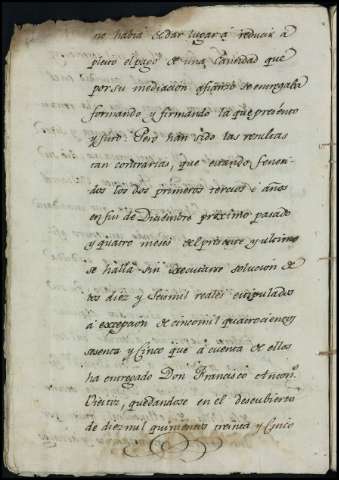 no habia de dar lugar á reducir á
pleito el pago de una Cantidad que
por su mediacion afianzó se entregaba
formando y firmando la que presento
y juro. Pero han sido las resultas
tan contrarias, que estando feneci-
dos los dos primeros tercios ó años
en fin de Diciembre proximo pasado
y quatro meses del presente y ultimo
se halla sin executarse solucion de
los diez y seis mil reales estipulados
á excepcion de cinco mil quatrocientos
sesenta y Cinco que á cuenta de ellos
ha entregado Don Francisco Anton.º
Vieitiz, quedandose en el descubierto
de diez mil quinientos treinta y Cinco